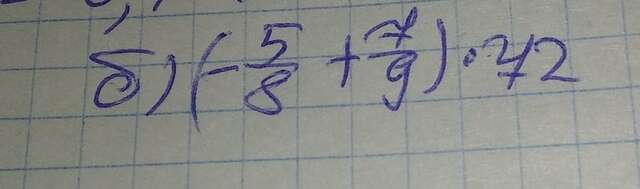 б) (-5/8 + 7/9) · 72